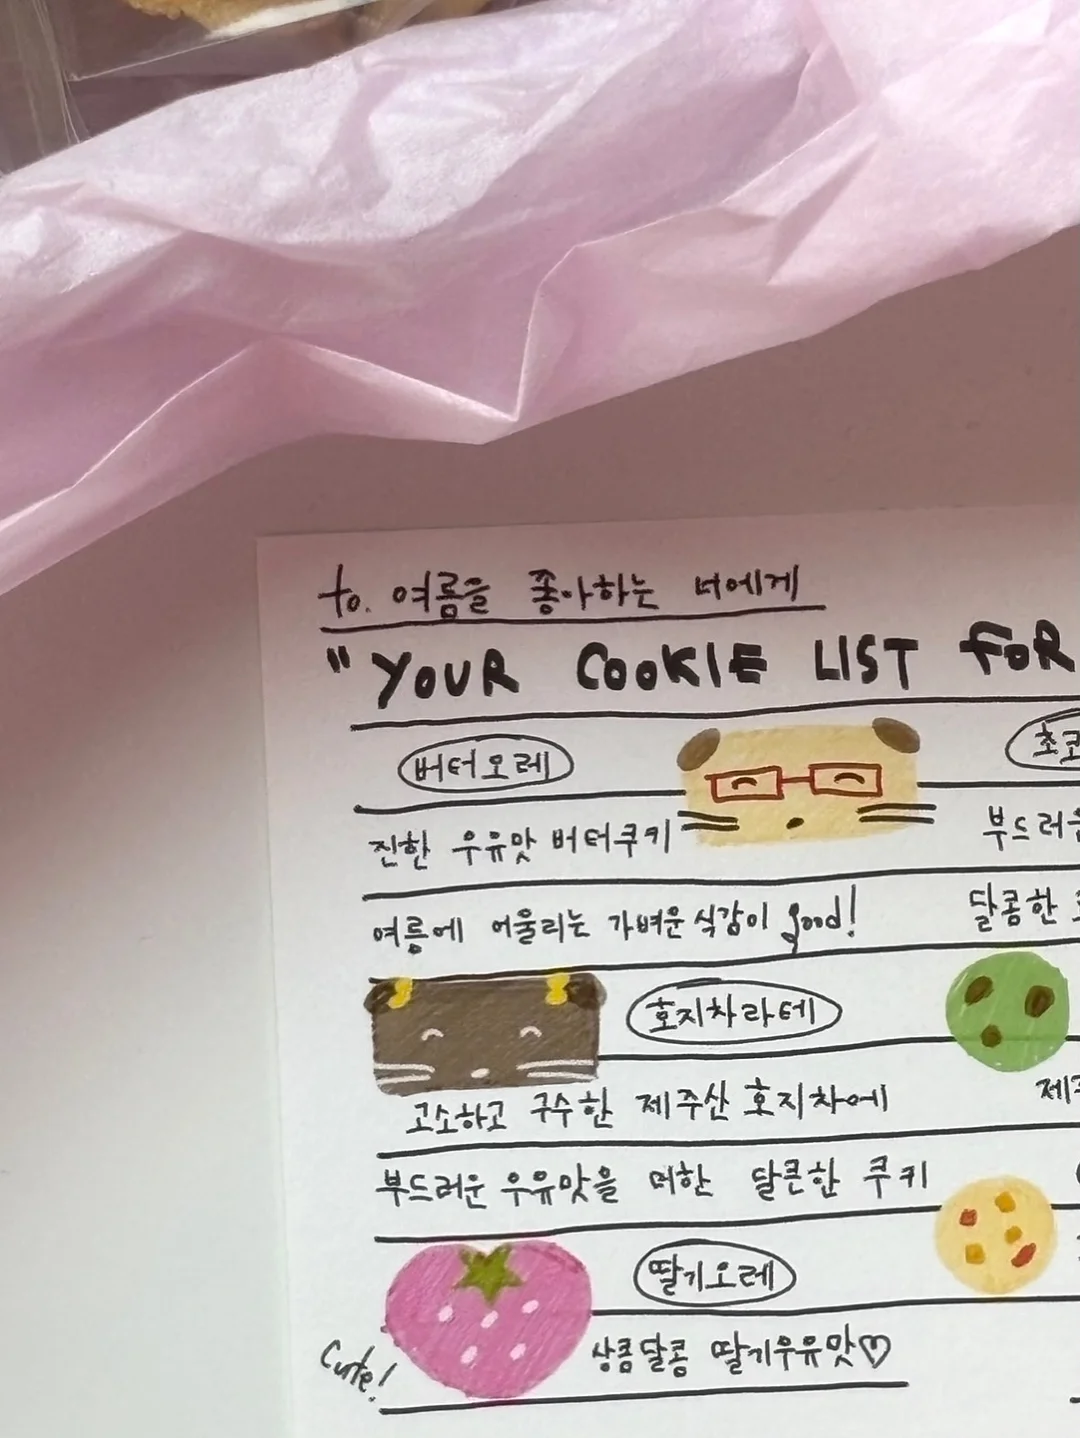 to. 여름을 좋아하는 너에게
"YOUR COOKIE LIST FOR
버터오레
진한 우유맛 버터쿠키
여름에 어울리는 가벼운 식감이 good!
호지차라떼
고소하고 구수한 제주산 호지차에
부드러운 우유맛을 더한 달큰한 쿠키
딸기오레
상콤달콤 딸기우유맛♡
Cute!
초코
부드러운
달콤한
제주